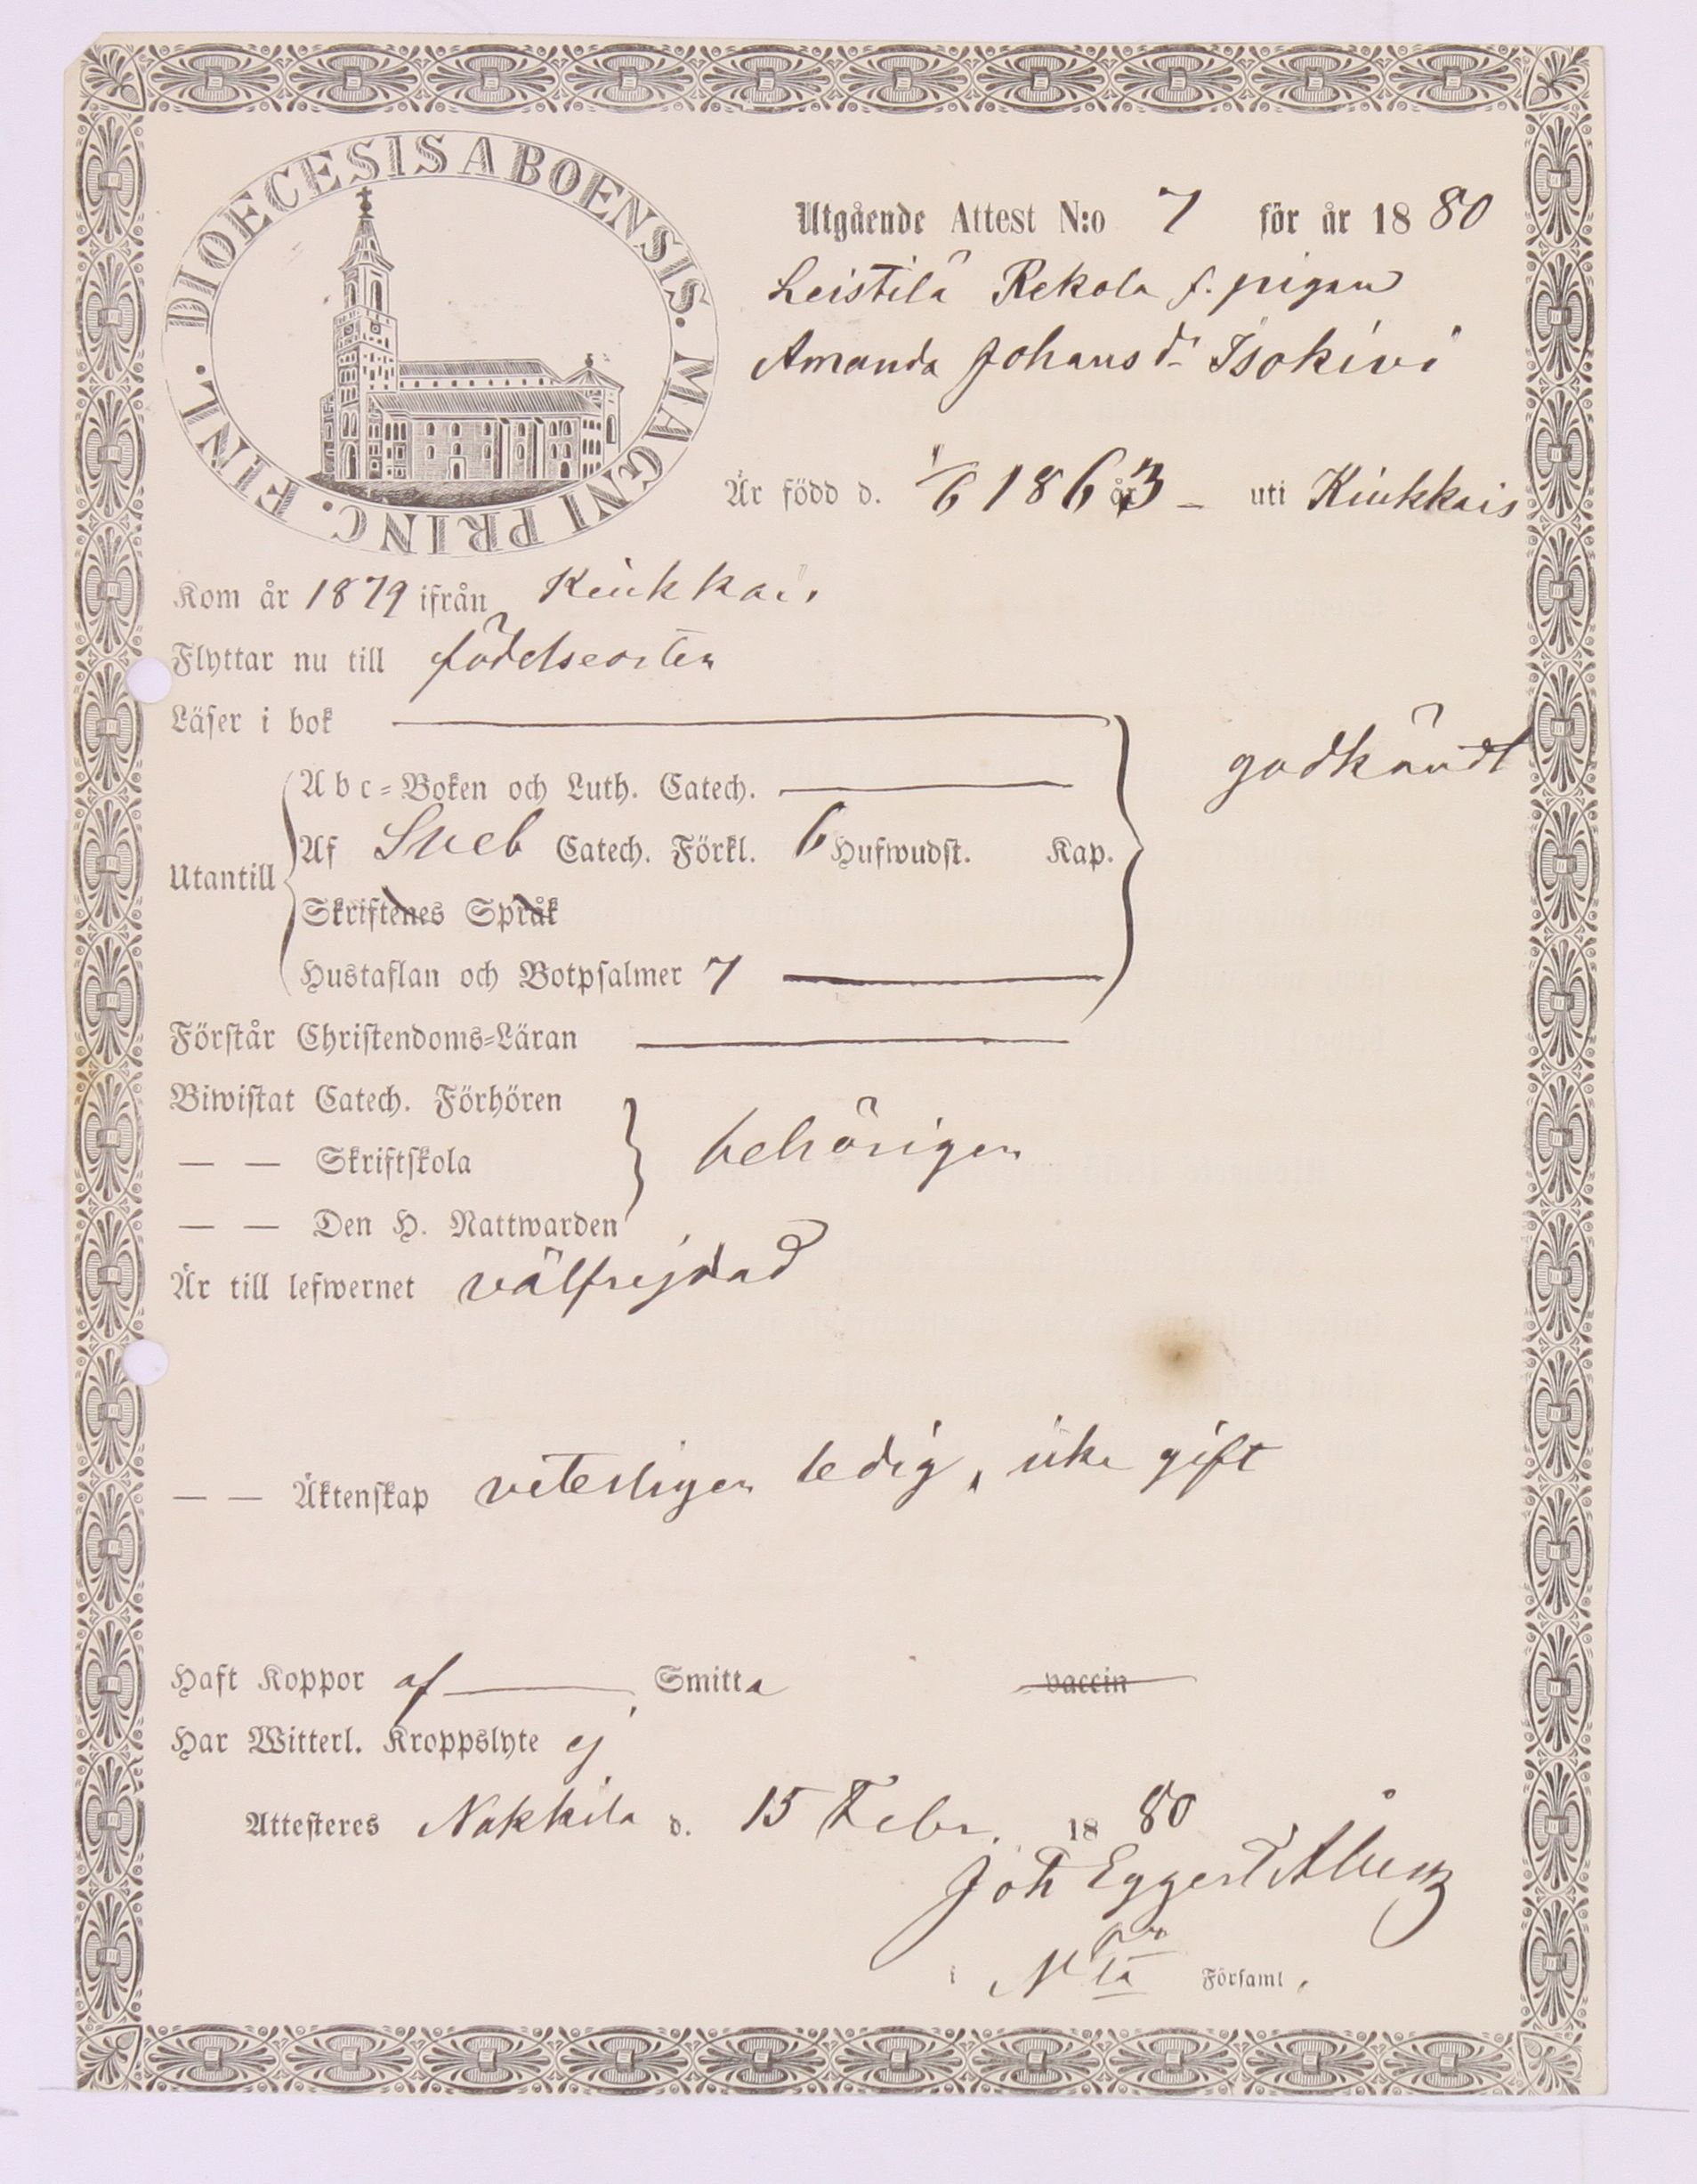 DIOECESIS ABOENSIS. MAGNI PRINC. FINL.
Utgående Attest N:o 7 för år 1880
Leistilä Rekola f. pigan
Amanda Johansdr Isokivi
Är född d. 1/6 1863 uti Kiukkais
Kom år 1879 ifrån Kiukkais
Flyttar nu till födelseorten
Läser i bok
godkändt
Abc-Boken och Luth. Catech.
Utantill
Af Sveb Catech. Förkl. 6 Hufwudst. Kap.
Skriftenes Språk
Hustaflan och Botpsalmer 7
Förstår Christendoms-Läran
Biwistat Catech. Förhören
— — Skriftskola behörigen
— — Den H. Nattwarden
Är till lefwernet välfrejdad
— — Äktenskap veterligen ledig, icke gift
Haft Koppor af Smitta vaccin
Har Witterl. Kroppslyte ej
Attesteres Nakkila d. 15 Febr. 1880
Joh Eggert
i N la Församl.